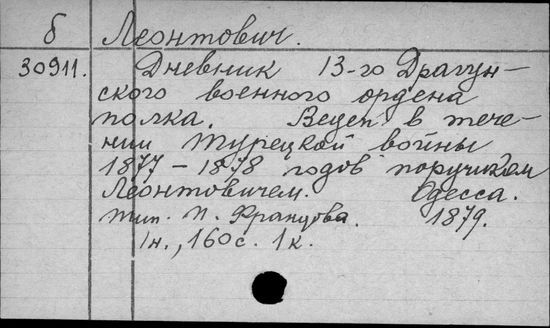 б Леонтович.
30911. Дневник 13-го Драгун-
ского военного ордена
полка. Веден в тече-
нии турецкой войны
1877 – 1878 годов поручиком
Леонтовичем. Одесса.
тип. П. Францова. 1879.
1н., 160 с. 1 к.